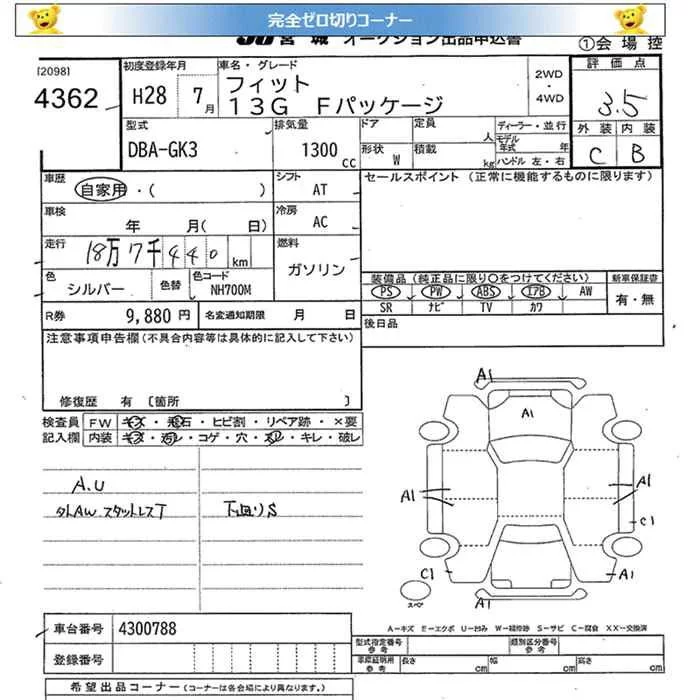 完全ゼロ切りコーナー
JU 宮城 オークション出品申込書
①会場控
[2098]
4362
初度登録年月
H28 7月
車名・グレード
フィット
13G Fパッケージ
2WD
・
4WD
評価点
3.5
型式
DBA-GK3
排気量
1300cc
ドア
定員
人
ディーラー・並行
モデル年式
年
形状
W
積載
kg
ハンドル 左・右
外装 内装
C B
車歴
自家用・( )
シフト
AT
セールスポイント(正常に機能するものに限ります)
車検
年 月( 日)
冷房
AC
走行
18万7千440km
燃料
ガソリン
色
シルバー
色替
色コード
NH700M
装備品(純正品に限り○をつけてください)
PS PW ABS エアB AW
SR ナビ TV カワ
新車保証書
有・無
R券
9,880円
名変通知期限 月 日
後日品
注意事項申告欄(不具合内容等は具体的に記入して下さい)
修復歴 有〔箇所 〕
検査員
記入欄
FW キズ・飛石・ヒビ割・リペア跡・×要
内装 キズ・汚レ・コゲ・穴・スレ・キレ・破レ
A.U
外AW スタットレスT
下廻りS
A1
A1
A1
A1
C1
C1
A1
A1
スペア
A-キズ E-エクボ U-凹み W-補修跡 S-サビ C-腐食 XX-交換済
車台番号
4300788
登録番号
型式指定番号
参考
類別区分番号
参考
車庫証明用
参考
長さ cm
幅 cm
高さ cm
希望出品コーナー(コーナーは各会場により異なります。)